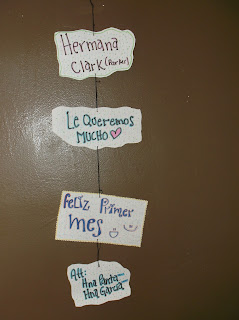 Hermana
Clark (Porter)
Le Queremos
MUCHO
Feliz Primer
mes
Att:
Hna Porter
Hna Garcia